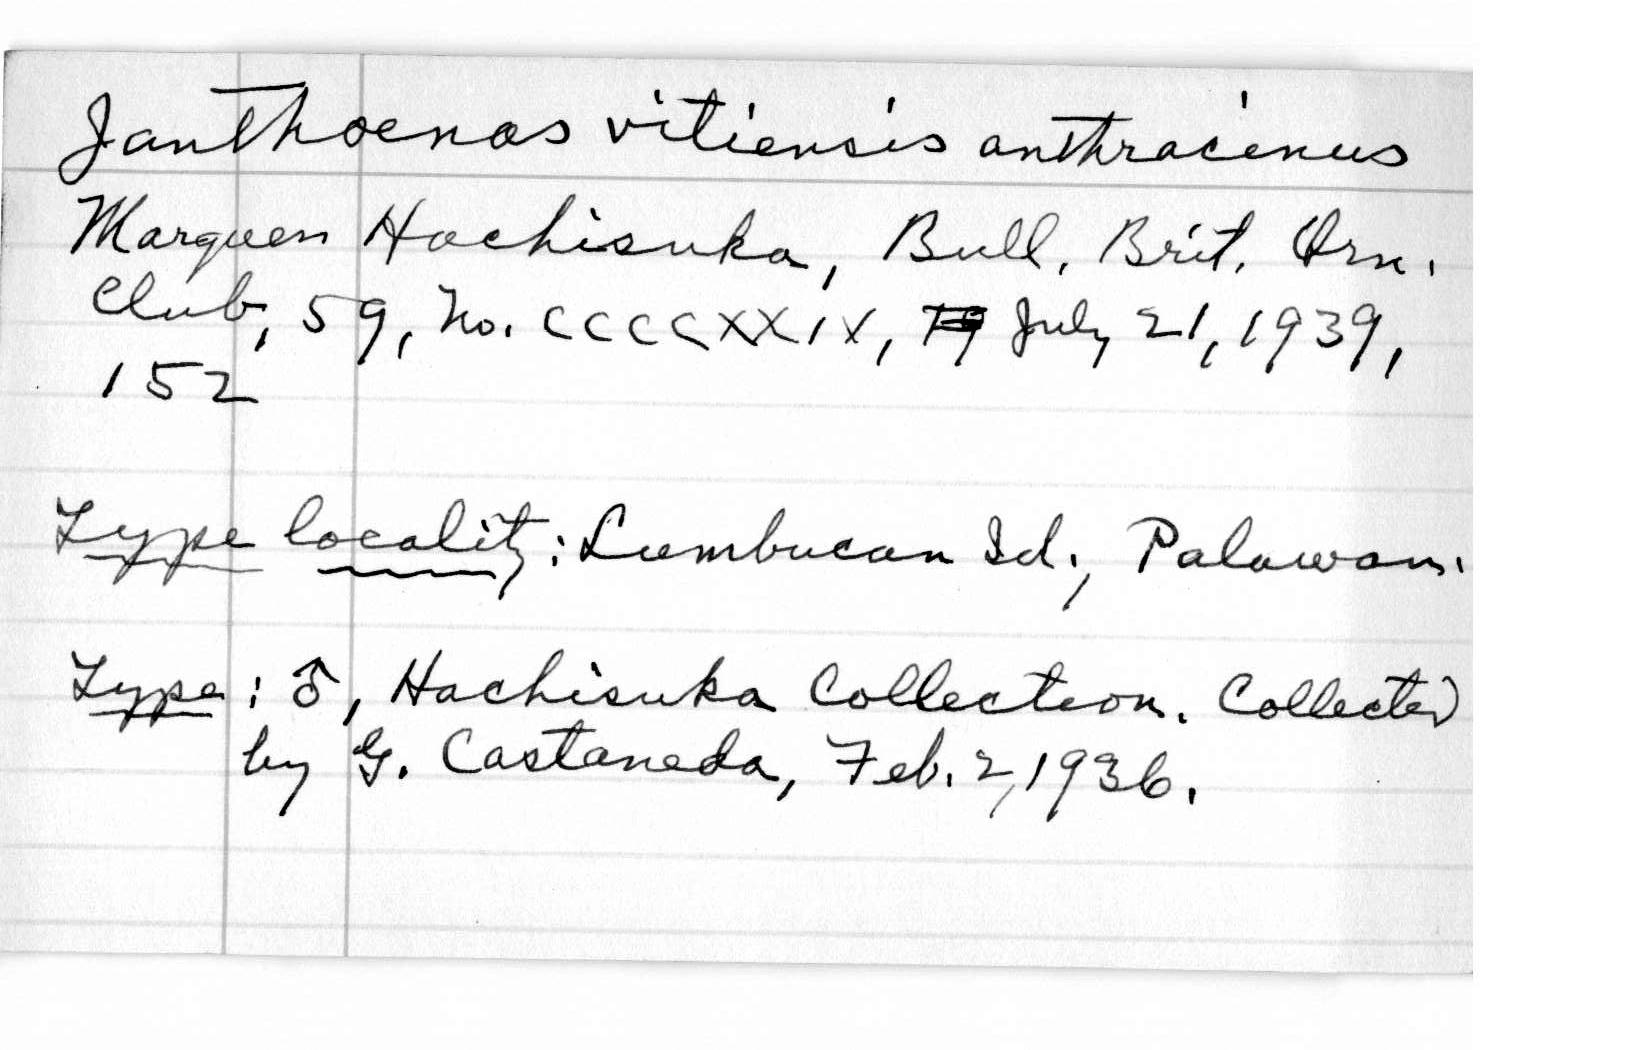 Janthoenas vitiensis anthracinus
Marquen Hachisuka, Bull. Brit. Orn.
Club, 59, No. CCCCXXIX, July 21, 1939,
152
Type locality: Lumbucan Id., Palawan.
Type: ♂, Hachisuka Collection. Collected
by G. Castaneda, Feb. 2, 1936.